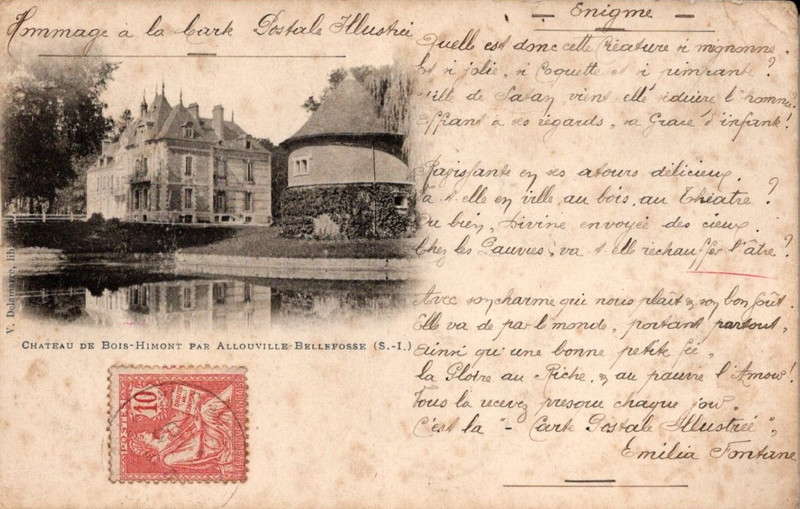 Hommage à la Carte Postale Illustrée
Enigme
Quelle est donc cette Créature si mignonne.
Est si jolie, si Coquette et si pimpante?
Fille de Satan vient elle séduire l'homme?
Offrant à ses regards, sa Grâce d'infante!
Ravissante en ses atours délicieux.
Va t'elle en ville, au bois, au Théatre?
Ou bien, Divine envoyée des cieux.
Chez les Pauvres, va t'elle réchauffer l'âtre?
Avec son charme qui nous plaît & son bon goût.
Elle va de par le monde, portant partout,
Ainsi qu'une bonne petite fée,
la Gloire au Riche, & au pauvre l'Amour!
Tous la recevez presque chaque jour.
C'est la "- Carte Postale Illustrée",
Emilia Fontane
V. Delamare, lib.
CHATEAU DE BOIS-HIMONT PAR ALLOUVILLE BELLEFOSSE (S.-I.)
10
POSTES